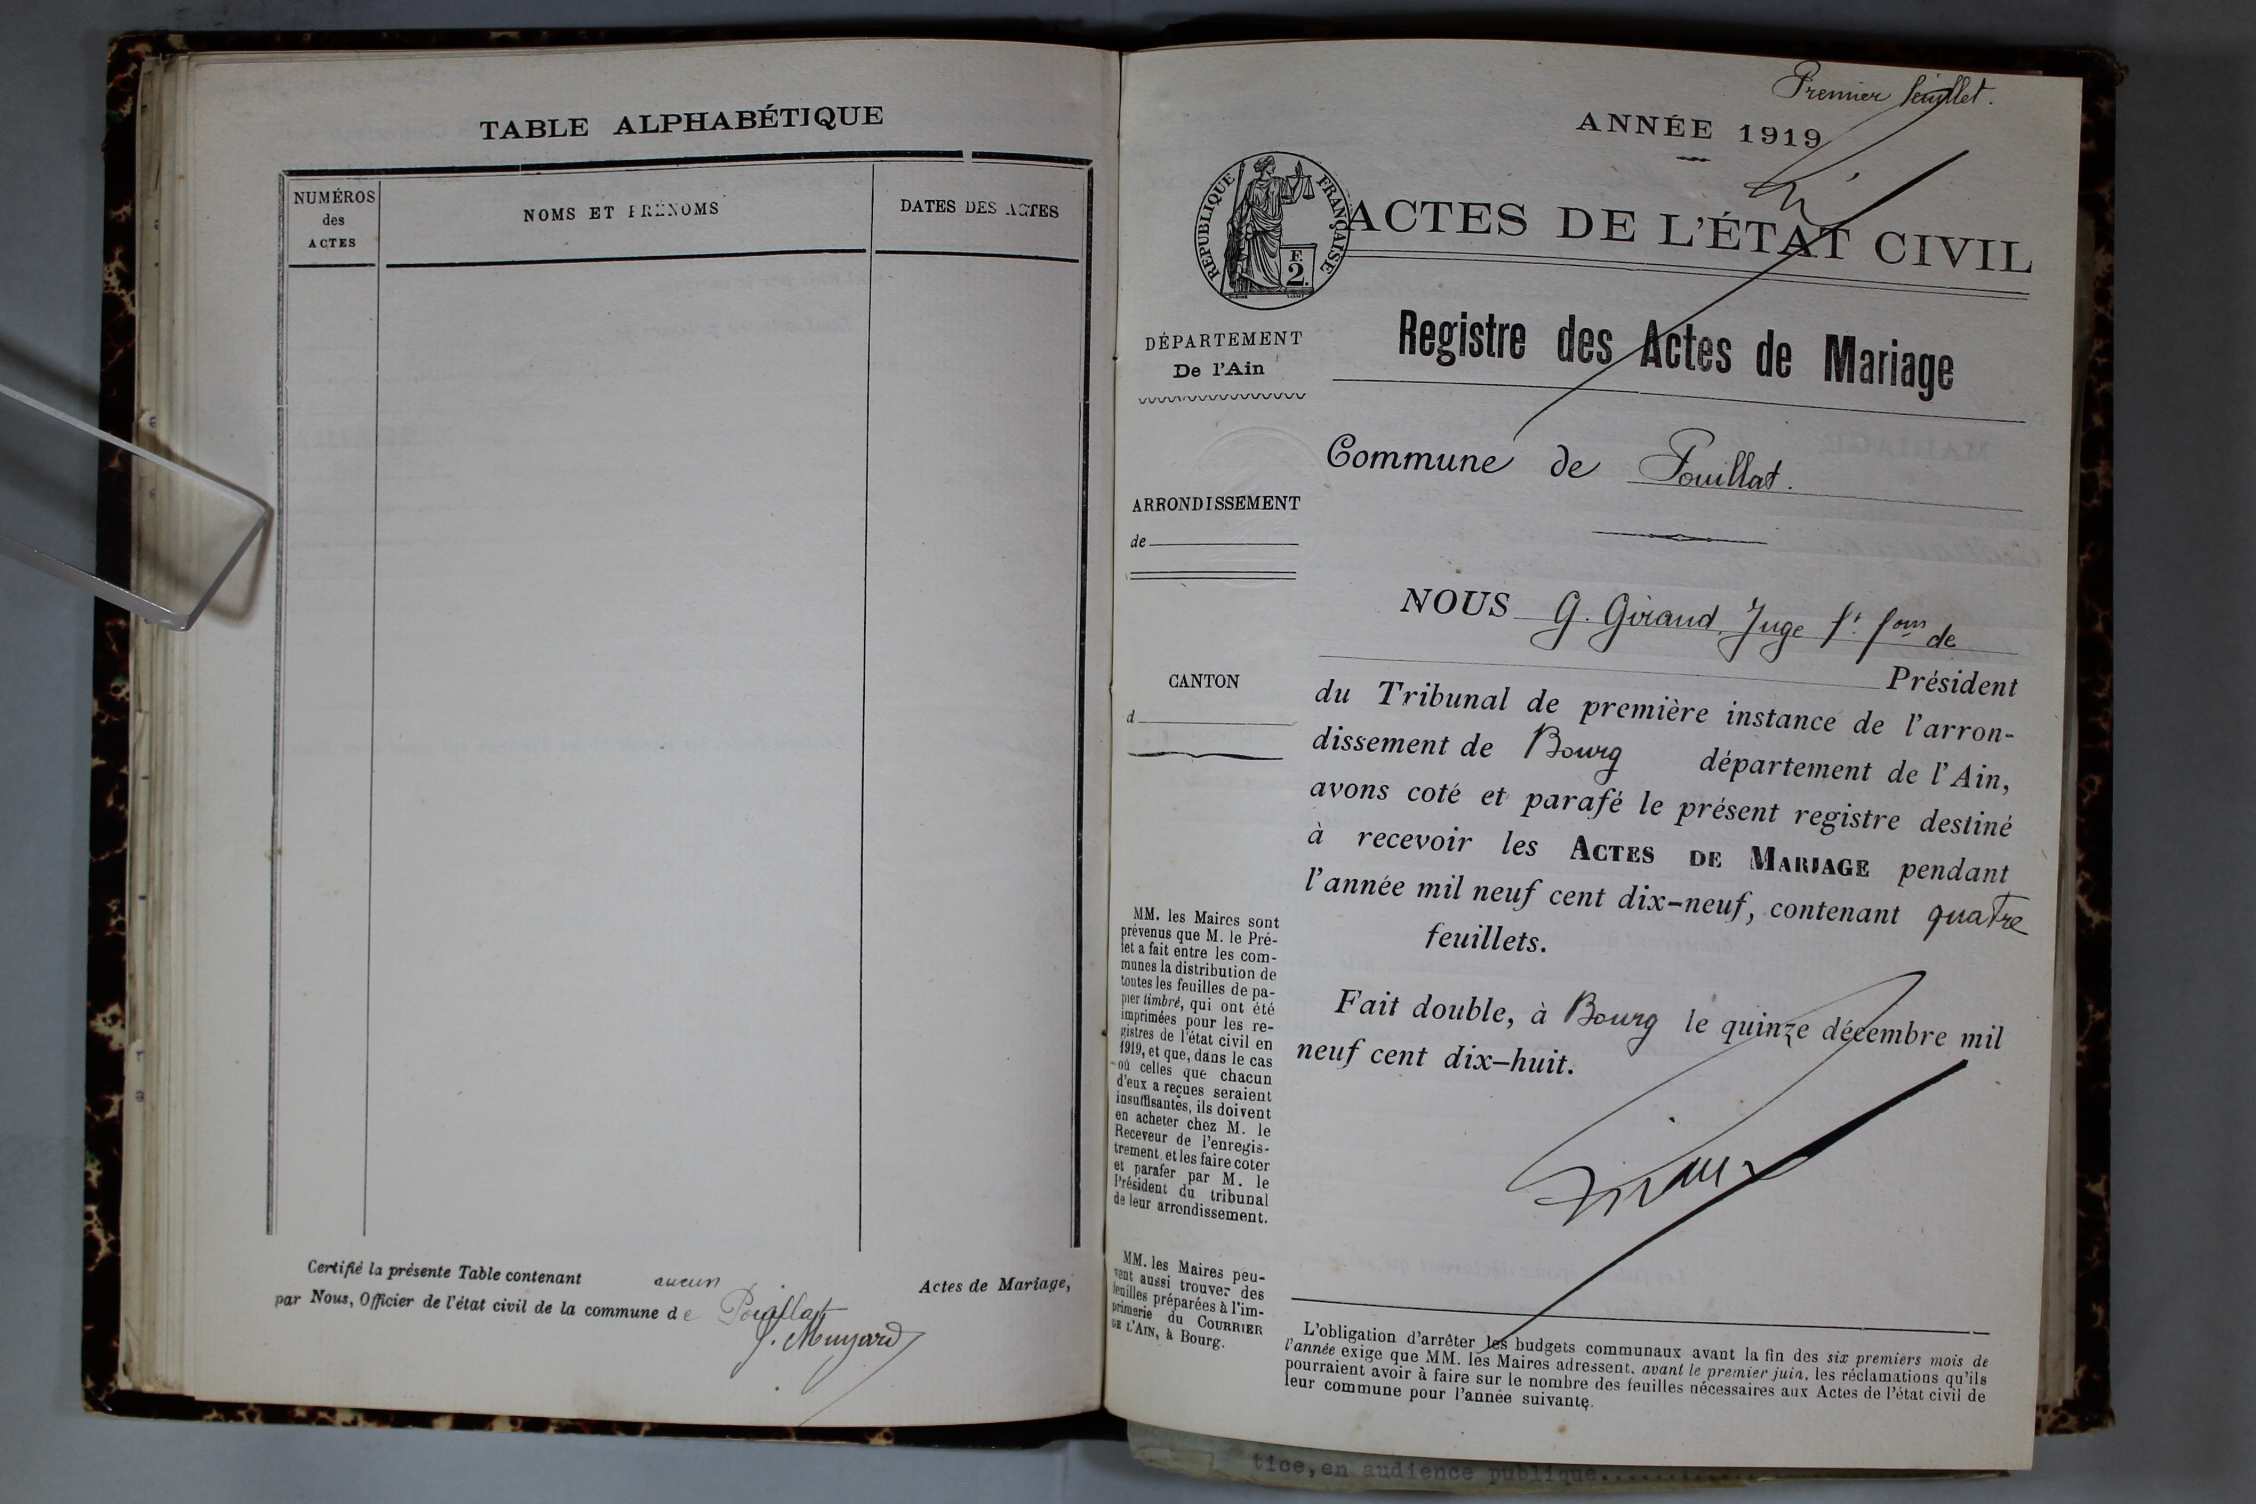 TABLE ALPHABÉTIQUE
NUMÉROS
des
ACTES
NOMS ET PRÉNOMS
DATES DES ACTES
Certifié la présente Table contenant aucun Actes de Mariage,
par Nous, Officier de l'état civil de la commune de Pouillat
J. Muyard
Premier feuillet.
ANNÉE 1919
RÉPUBLIQUE FRANÇAISE
F.
2.
ACTES DE L'ÉTAT CIVIL
Registre des Actes de Mariage
DÉPARTEMENT
De l'Ain
Commune de Pouillat.
ARRONDISSEMENT
de
CANTON
d
NOUS G. Giraud, Juge ft fons de
Président
du Tribunal de première instance de l'arron-
dissement de Bourg département de l'Ain,
avons coté et parafé le présent registre destiné
à recevoir les ACTES DE MARIAGE pendant
l'année mil neuf cent dix-neuf, contenant quatre
feuillets.
Fait double, à Bourg le quinze décembre mil
neuf cent dix-huit.
Giraud
MM. les Maires sont
prévenus que M. le Pré-
fet a fait entre les com-
munes la distribution de
toutes les feuilles de pa-
pier timbré, qui ont été
imprimées pour les re-
gistres de l'état civil en
1919, et que, dans le cas
où celles que chacun
d'eux a reçues seraient
insuffisantes, ils doivent
en acheter chez M. le
Receveur de l'enregis-
trement et les faire coter
et parafer par M. le
Président du tribunal
de leur arrondissement.
MM. les Maires peu-
vent aussi trouver des
feuilles préparées à l'im-
primerie du COURRIER
DE L'AIN, à Bourg.
L'obligation d'arrêter les budgets communaux avant la fin des six premiers mois de
l'année exige que MM. les Maires adressent, avant le premier juin, les réclamations qu'ils
pourraient avoir à faire sur le nombre des feuilles nécessaires aux Actes de l'état civil de
leur commune pour l'année suivante.
tice,en audience publique